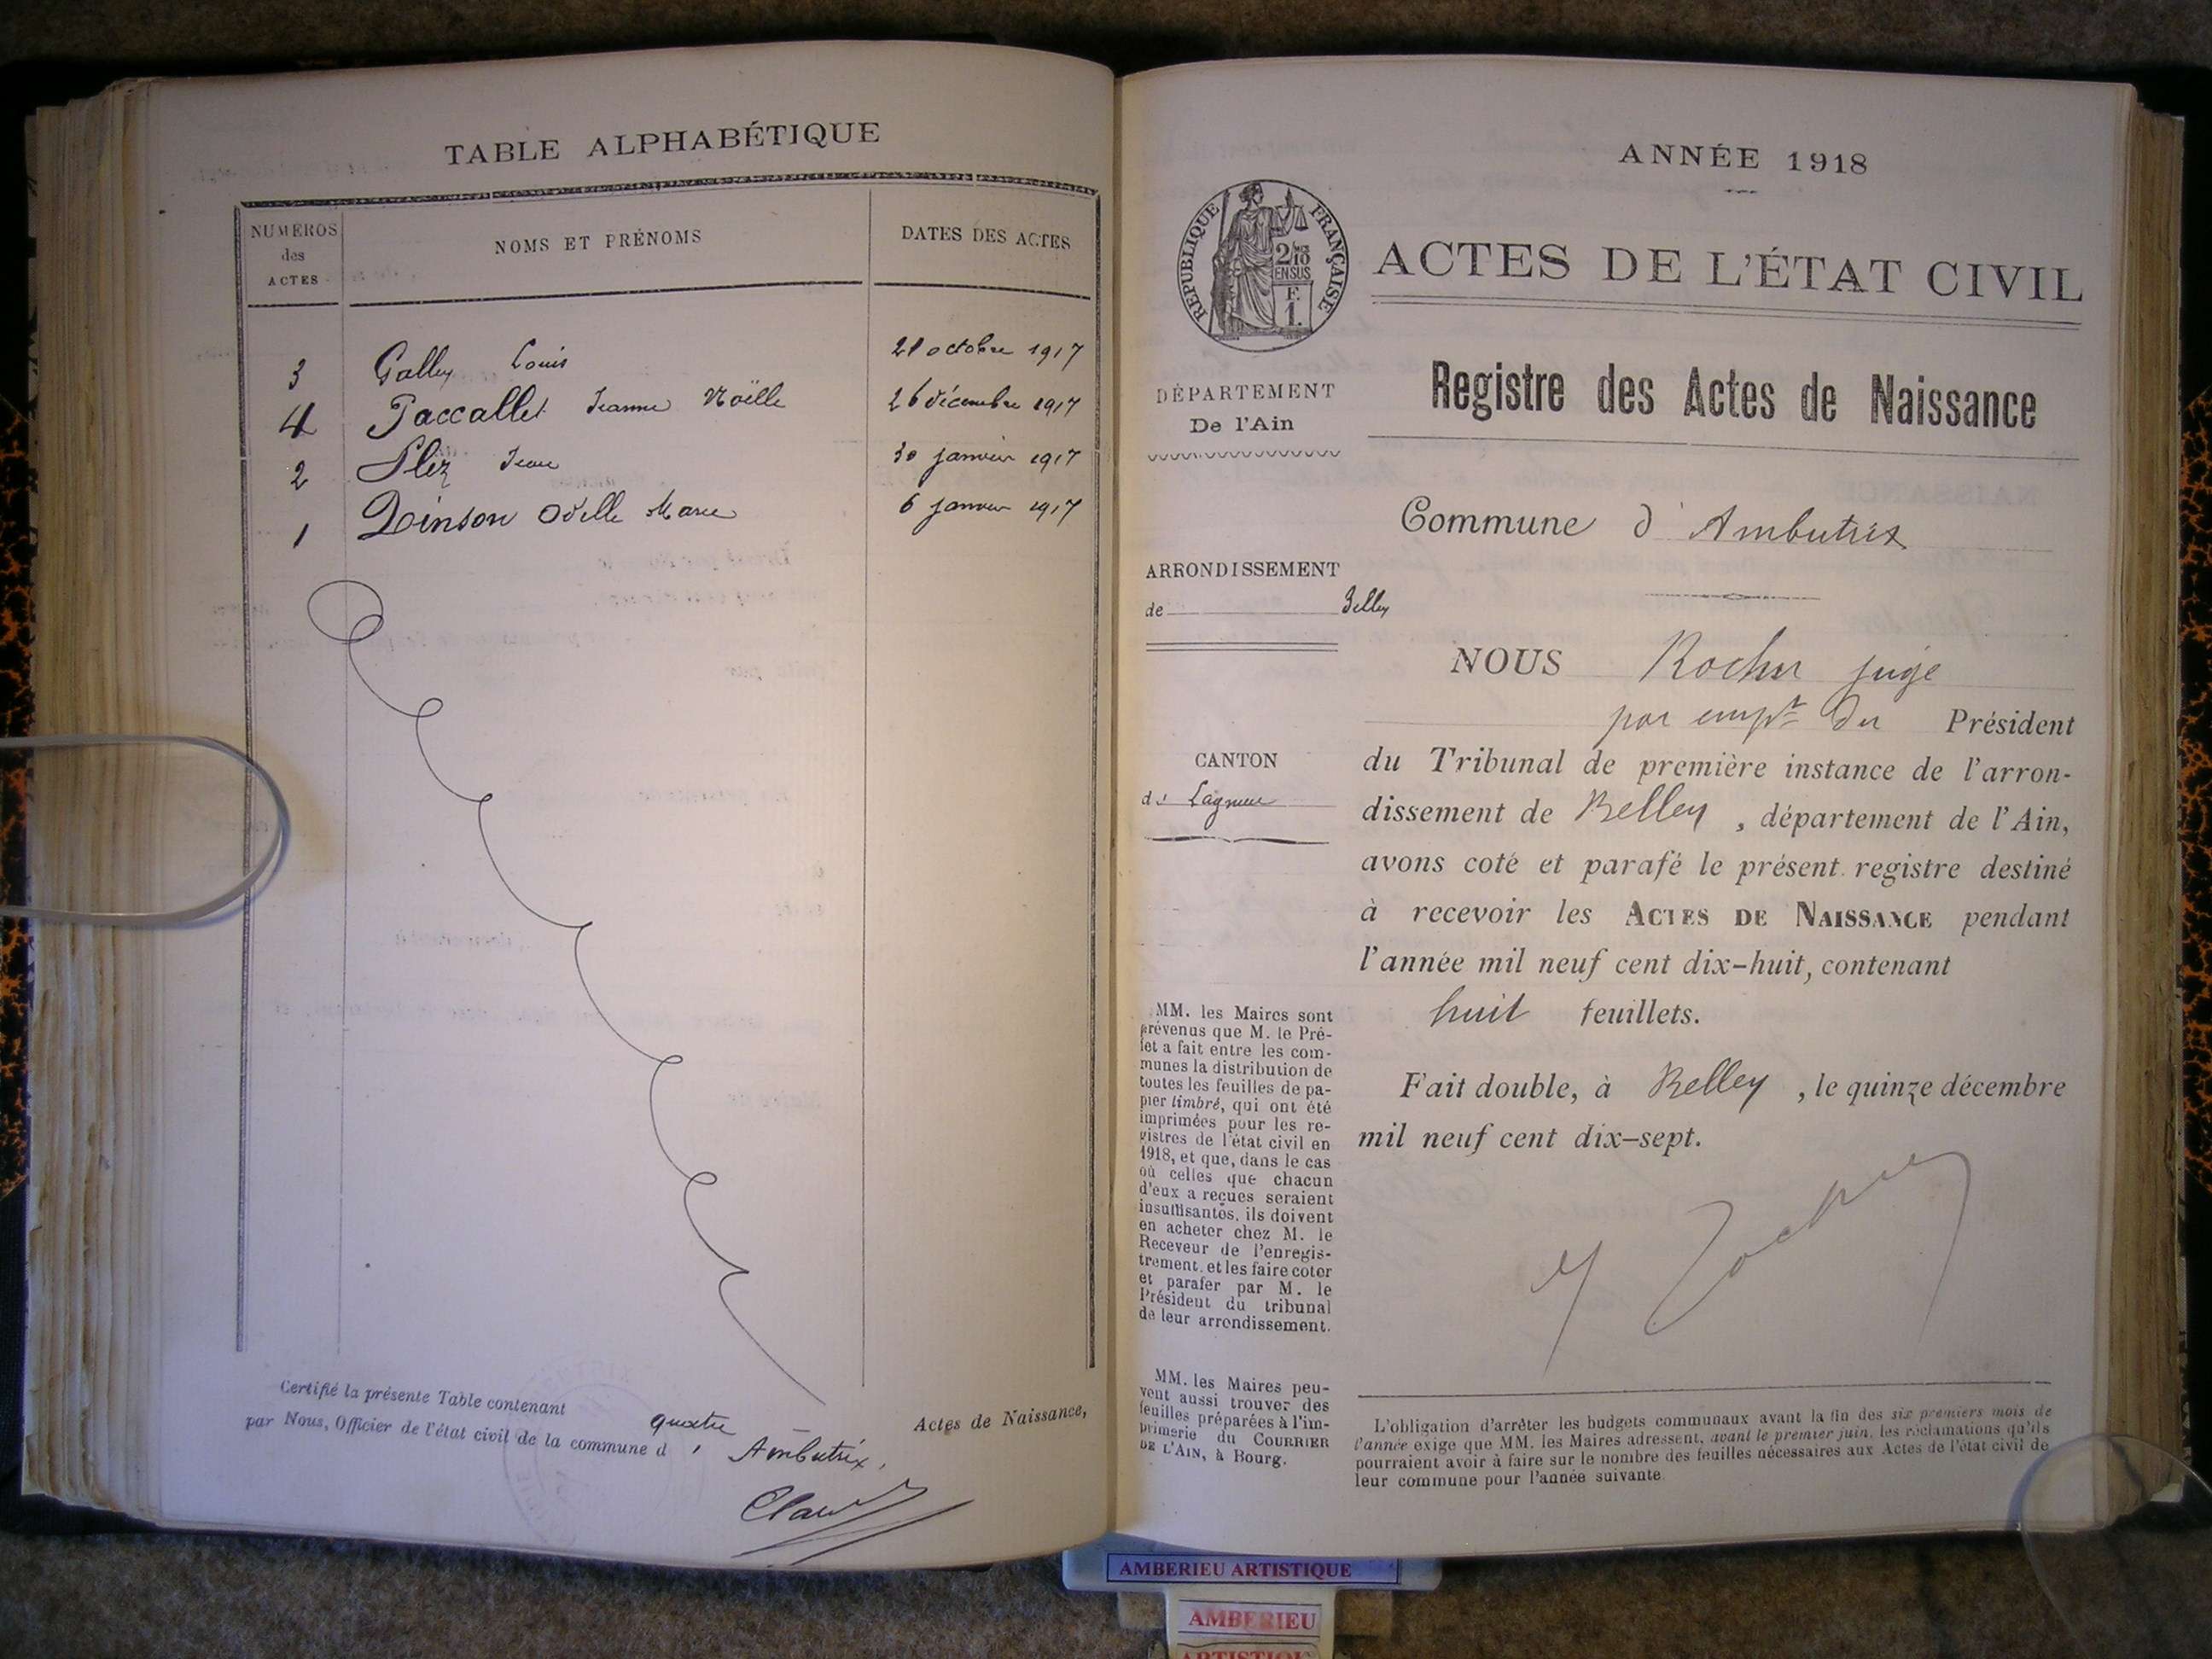 TABLE ALPHABÉTIQUE
NUMÉROS
des
ACTES
NOMS ET PRÉNOMS
DATES DES ACTES
3 Galley Louis 21 octobre 1917
4 Paccallet Jeanne Noëlle 26 décembre 1917
2 Jean 30 janvier 1917
1 Odille Marie 6 janvier 1917
Certifié la présente Table contenant quatre Actes de Naissance,
par Nous, Officier de l'état civil de la commune d' Ambutrix,
ANNÉE 1918
RÉPUBLIQUE FRANÇAISE
2/10
EN SUS
F.
1.
ACTES DE L'ÉTAT CIVIL
Registre des Actes de Naissance
DÉPARTEMENT
De l'Ain
Commune d'Ambutrix
ARRONDISSEMENT
de Belley
CANTON
de Lagnieu
NOUS Rocher juge
par empt du Président
du Tribunal de première instance de l'arron-
dissement de Belley, département de l'Ain,
avons coté et parafé le présent registre destiné
à recevoir les ACTES DE NAISSANCE pendant
l'année mil neuf cent dix-huit, contenant
huit feuillets.
Fait double, à Belley, le quinze décembre
mil neuf cent dix-sept.
Rocher
MM. les Maires sont
prévenus que M. le Pré-
fet a fait entre les com-
munes la distribution de
toutes les feuilles de pa-
pier timbré, qui ont été
imprimées pour les re-
gistres de l'état civil en
1918, et que, dans le cas
où celles que chacun
d'eux a reçues seraient
insuffisantes, ils doivent
en acheter chez M. le
Receveur de l'enregis-
trement, et les faire coter
et parafer par M. le
Président du tribunal
de leur arrondissement.
MM. les Maires peu-
vent aussi trouver des
feuilles préparées à l'im-
primerie du COURRIER
DE L'AIN, à Bourg.
L'obligation d'arrêter les budgets communaux avant la fin des six premiers mois de
l'année exige que MM. les Maires adressent, avant le premier juin, les réclamations qu'ils
pourraient avoir à faire sur le nombre des feuilles nécessaires aux Actes de l'état civil de
leur commune pour l'année suivante
AMBERIEU ARTISTIQUE
AMBERIEU
ARTISTIQUE